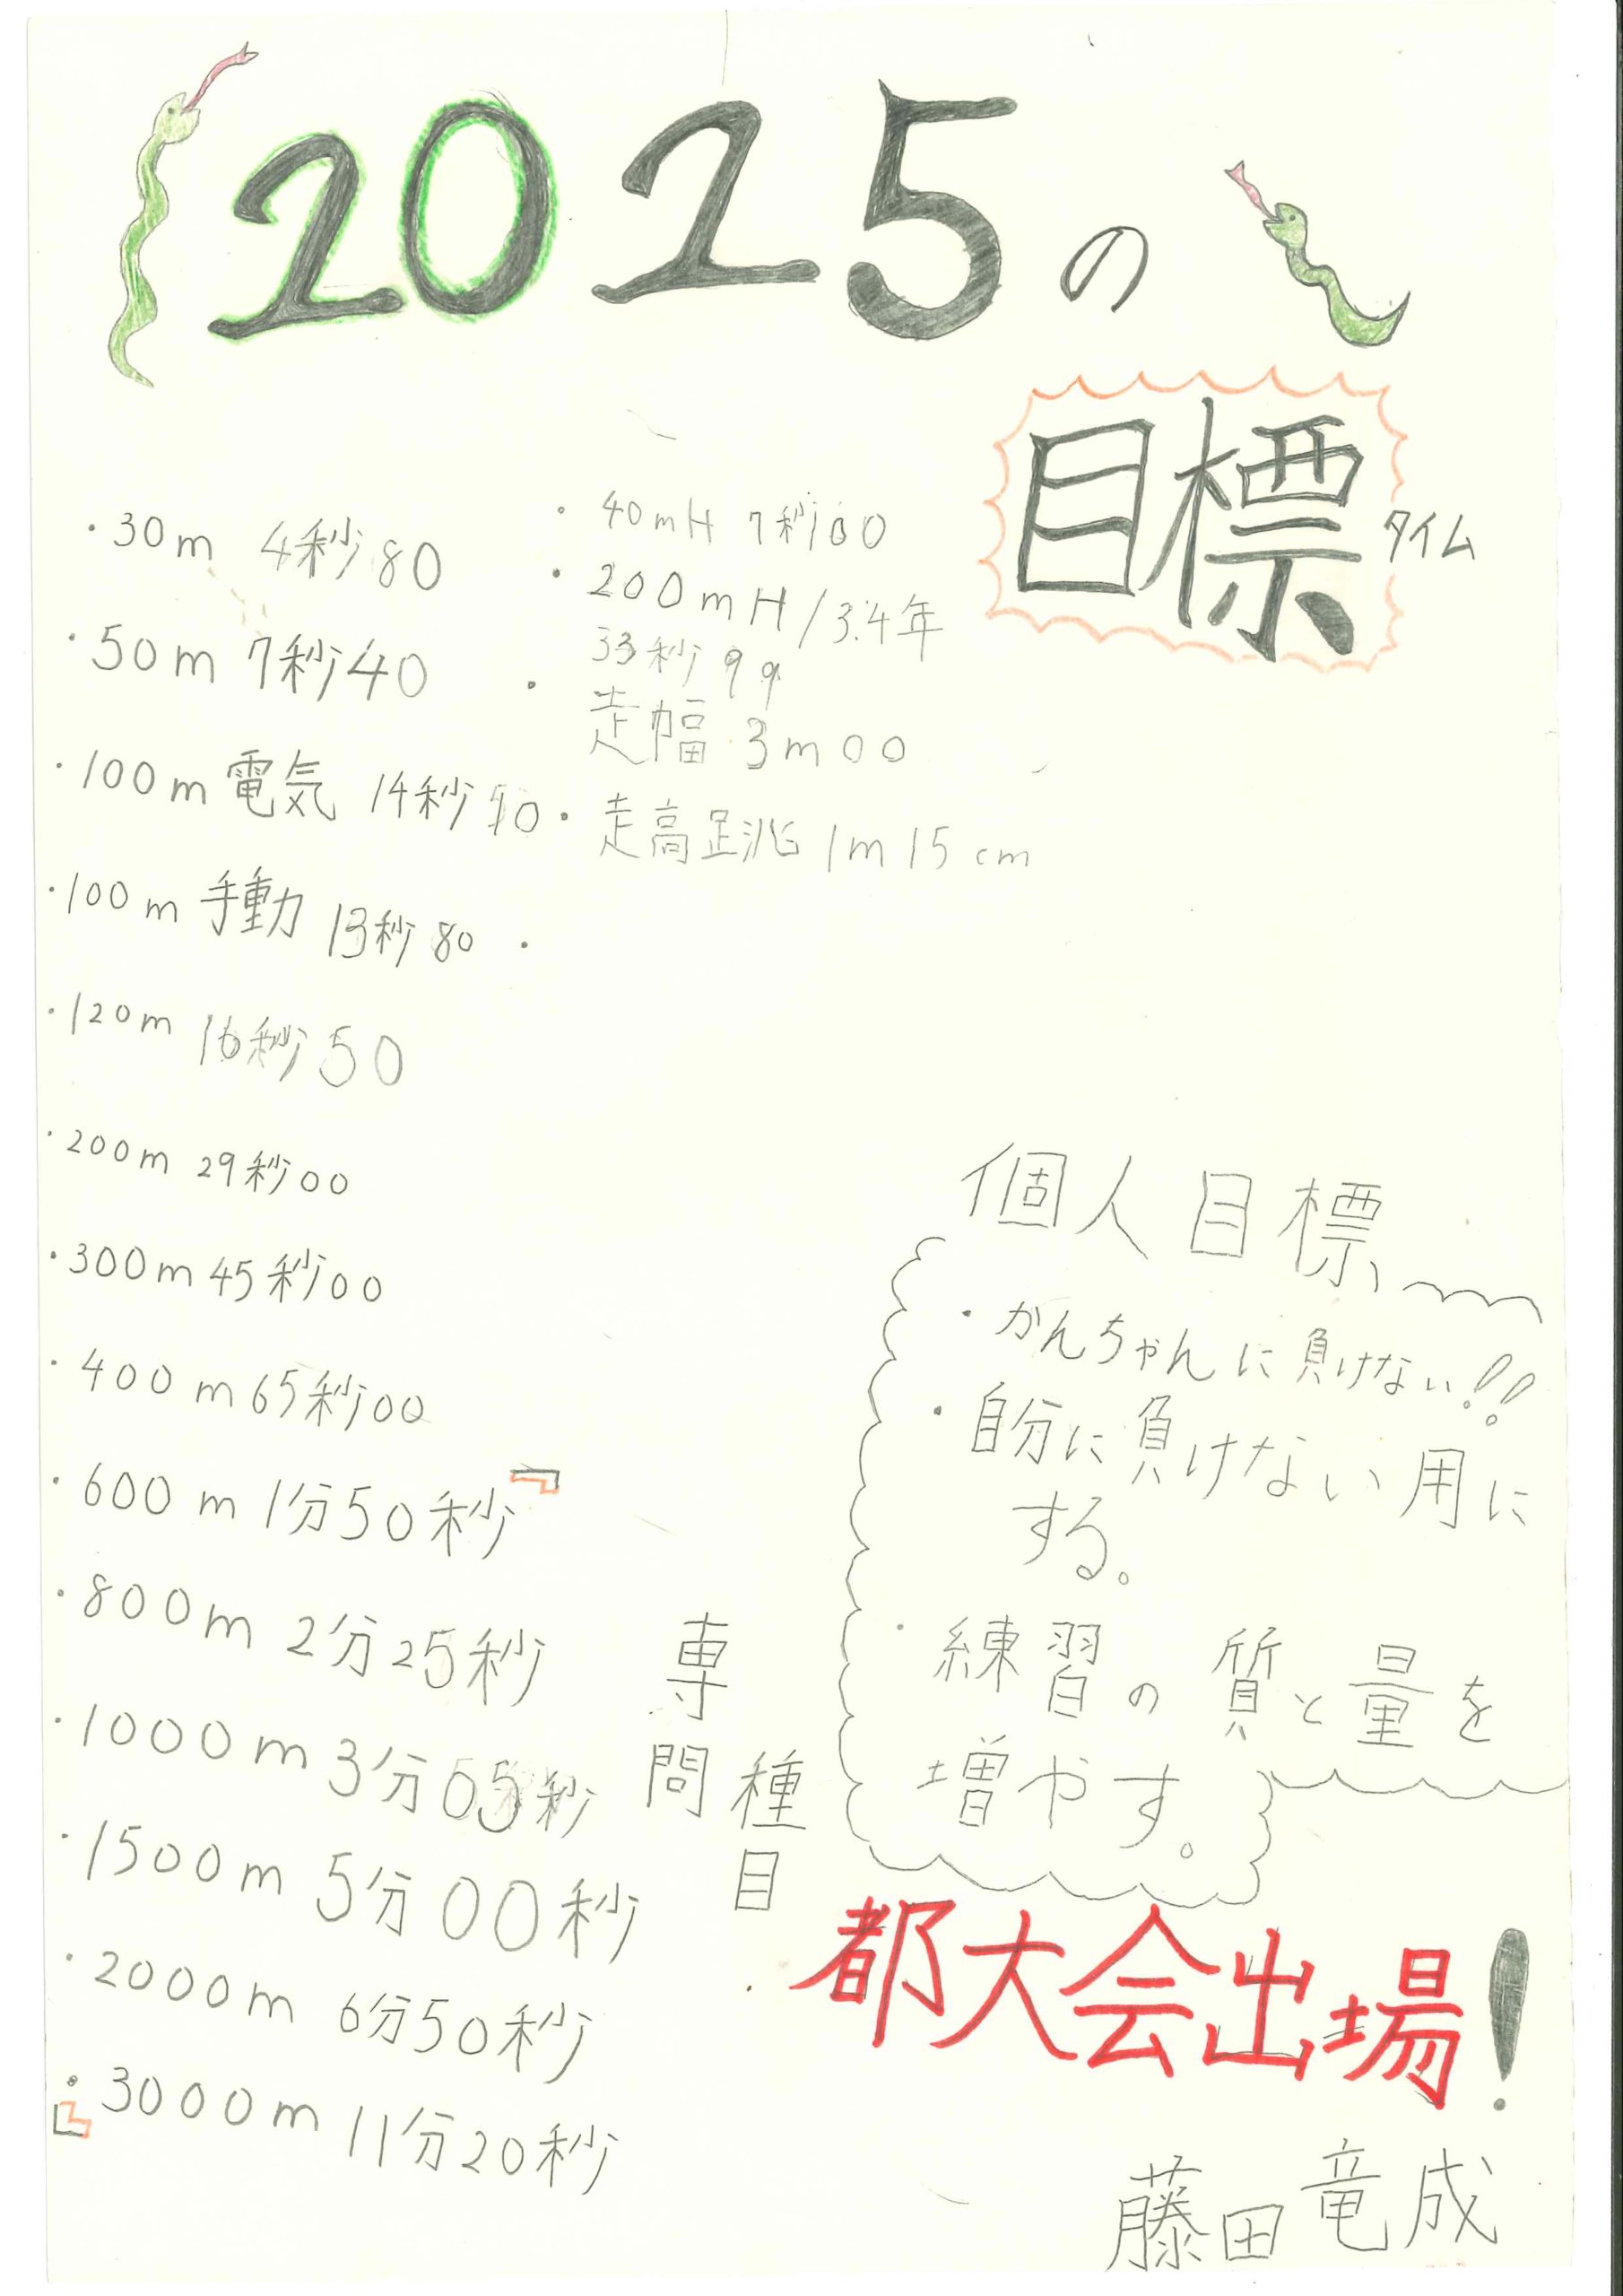 2025の
目標
タイム
・30m 4秒80
・50m 7秒40
・100m電気 14秒
・100m手動 13秒80
・120m 16秒50
・200m 29秒00
・300m 45秒00
・400m 65秒00
・600m 1分50秒
・800m 2分25秒
・1000m 3分05秒
・1500m 5分00秒
・2000m 6分50秒
・3000m 11分20秒
・40mH 7秒00
・200mH/3.4年
33秒99
・走幅 3m00
・走高跳 1m15cm
・
専問
種目
個人目標
・かんちゃんに負けない!!
・自分に負けない用に
する。
・練習の質と量を
増やす。
都大会出場!
藤田竜成